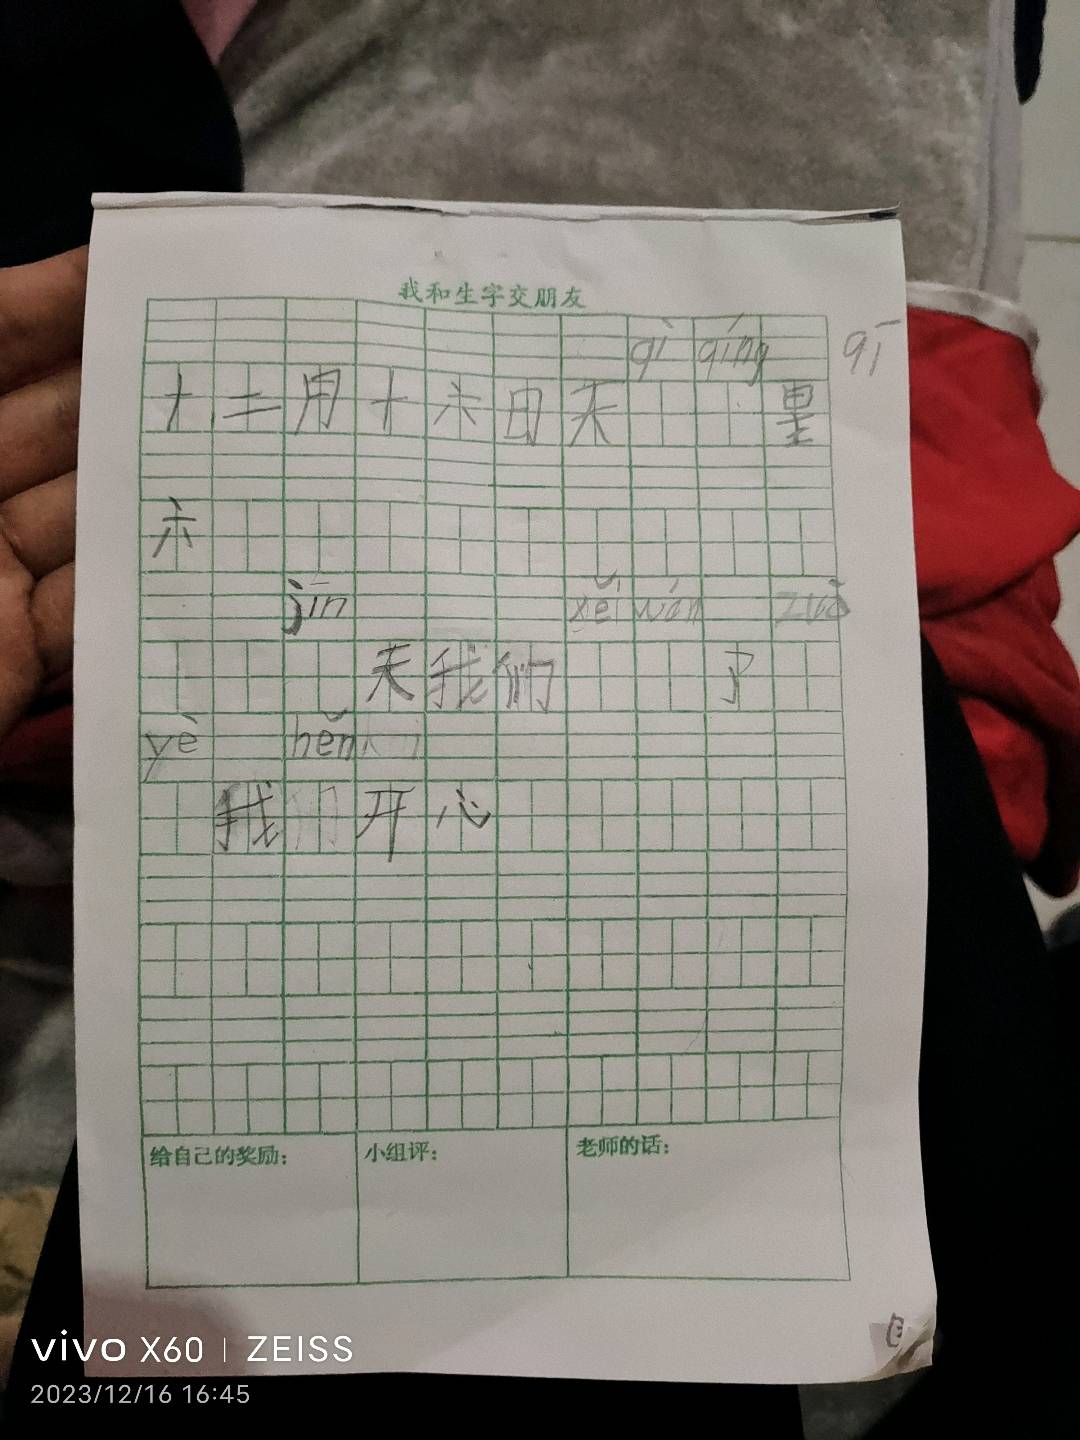 我和生字交朋友
qì qíng qī
十二月十六日天 星
六
jīn xěi wán zuò
天我们 了
yè hěn
我们开心
给自己的奖励： 小组评： 老师的话：
vivo X60 | ZEISS
2023/12/16 16:45